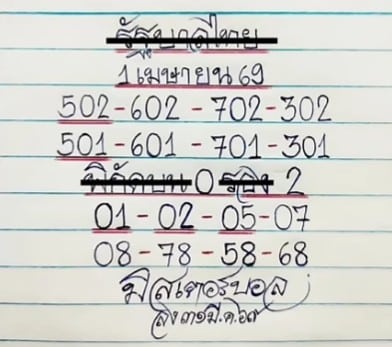 รัฐบาลไทย
1 เมษายน 69
502-602-702-302
501-601-701-301
พิกัดบน 0 รอง 2
01-02-05-07
08-78-58-68
มิสเตอร์บอล
ส่ง๓๑มี.ค.๖๙